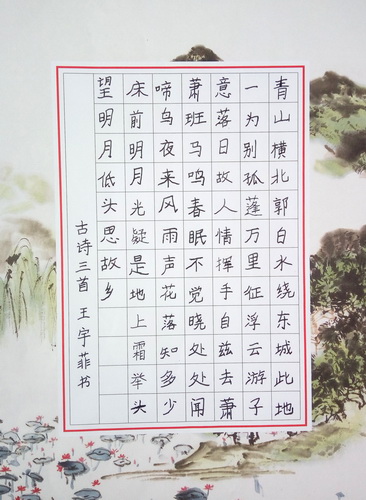 青山横北郭白水绕东城此地
一为别孤蓬万里征浮云游子
意落日故人情挥手自兹去萧
萧班马鸣春眠不觉晓处处闻
啼鸟夜来风雨声花落知多少
床前明月光疑是地上霜举头
望明月低头思故乡
古诗三首 王宇菲书